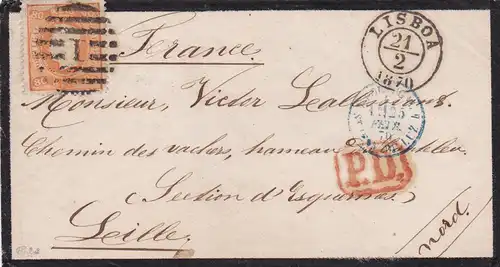 France
1
LISBOA
21
2
1870
Monsieur, Victor
25
FEVR.
70
Chemin des vaches, hameau
P.D.
(Section d'Esquermes)
Lille
nord.